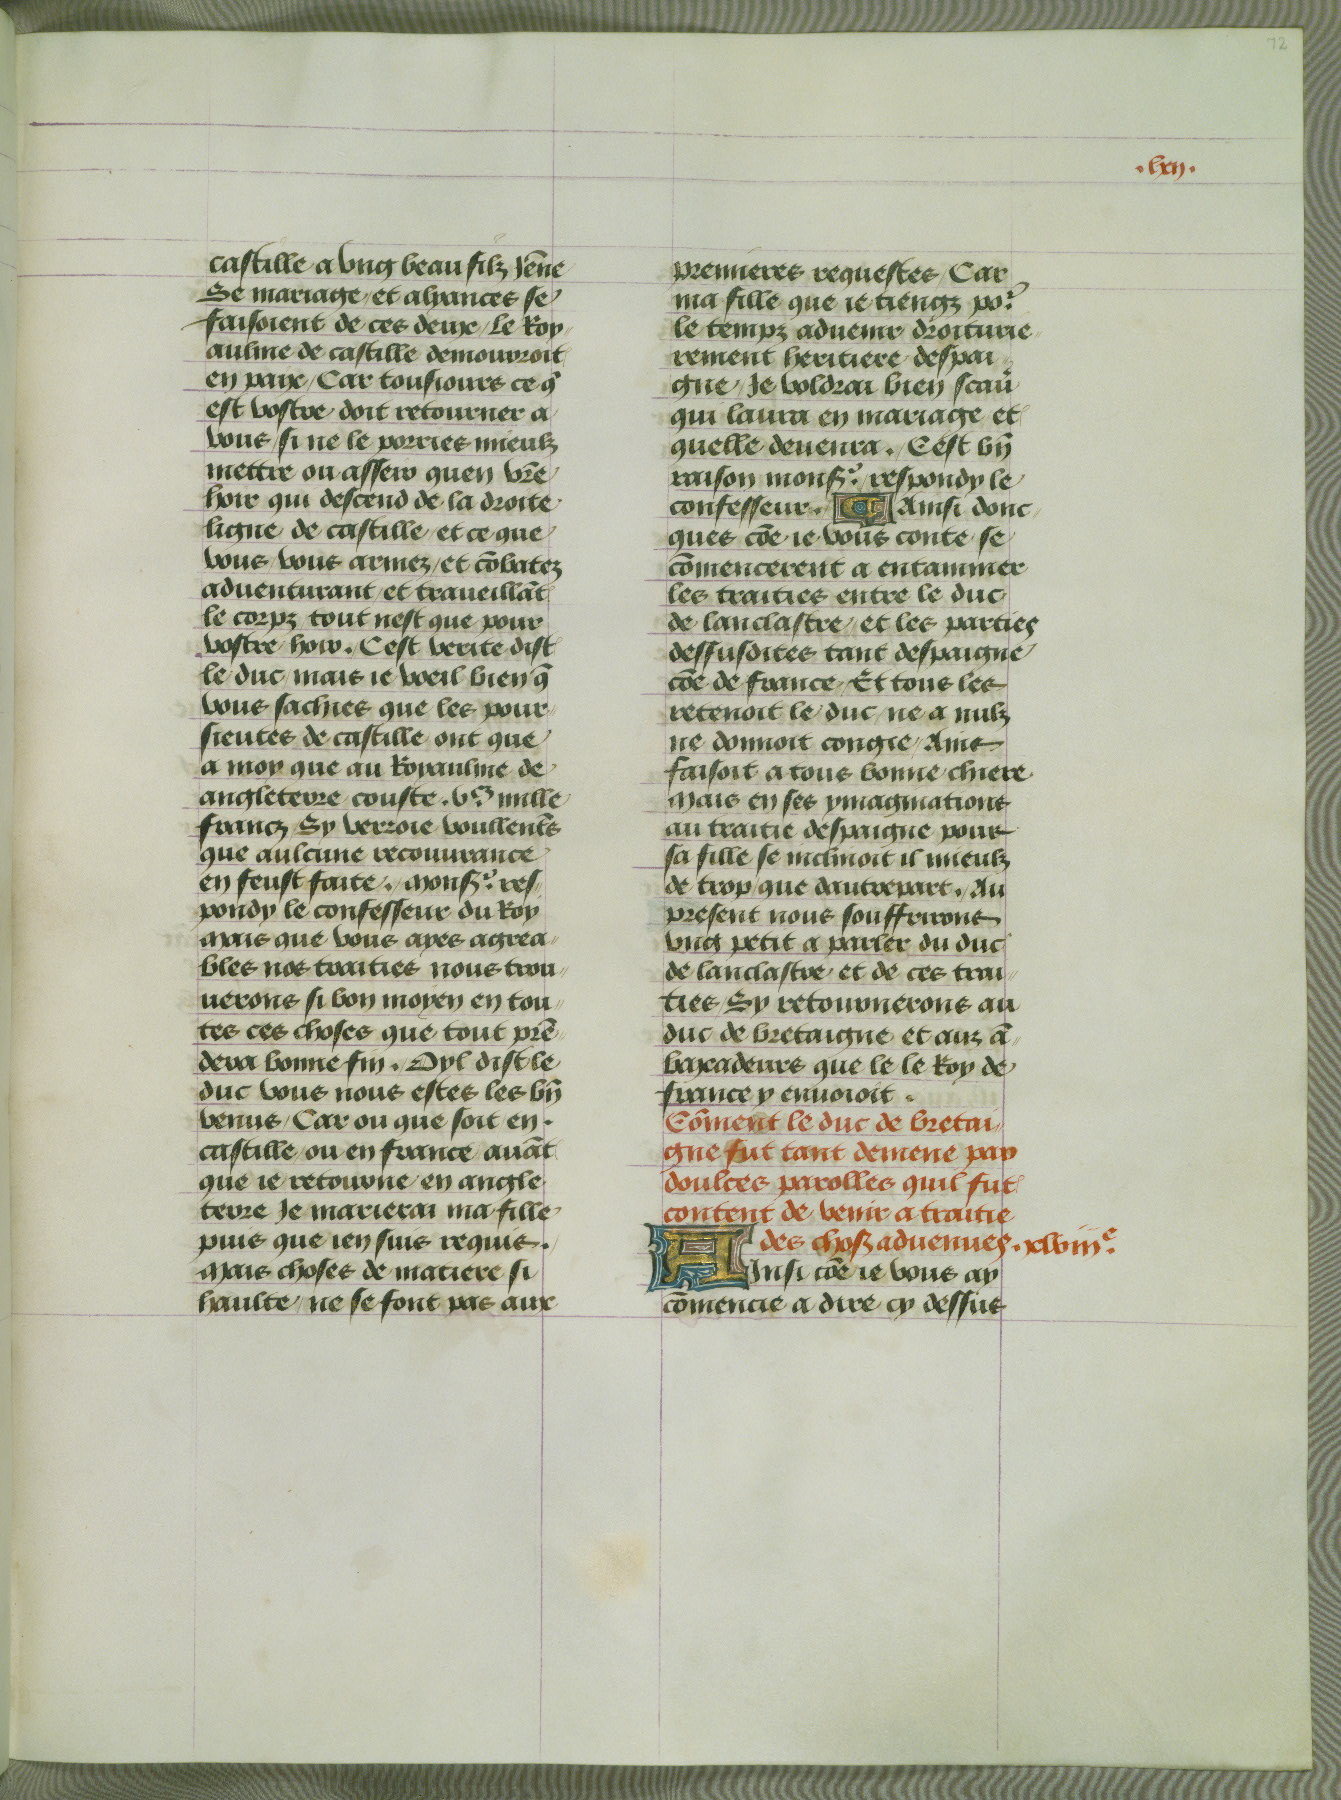 72
.lxxij.
castille a vng beau filz Jēne
Se mariage et alyances se
faisoient de ces deux / le Roy
aulme de castille demourroit
en paix / Car tousiours ce q̄
est vostre doit retourner a
vous si ne le porries mieulz
mettre ou asseir quen vr̄e
hoir qui descend de la droite
ligne de castille et ce que
vous vous armez et cōbatez
aduenturant et traueillāt
le corpz tout nest que pour
vostre hoir . Cest verite dist
le duc mais ie voeil bien q̄
vous sachies que les pour
sieutes de castille ont que
a moy que au Royaulme de
angleterre couste . vᶜ mille
francz Sy verroie voullentˢ
que aulcune recouurance
en feust faite . monsʳ res
pondy le confesseur du Roy
mais que vous ayes agrea
bles nos traities nous trou
uerons si bon moyen en tou
tes ces choses que tout prē
dera bonne fin . Oyl dist le
duc vous nous estes les bn̄
venus / Car ou que soit en .
castille ou en france auāt
que ie retourne en angle
terre Je marierai ma fille
puis que ien suis requis .
mais choses de matiere si
haulte ne se font pas aux
premieres requestes / Car
ma fille que ie tiengz poʳ
le tempz aduenir droiturie
rement heritiere despai
gne / Je voldrai bien scau̅
qui laura en mariage et
quelle deuenra . Cest bn̄
raison monsʳ respondy le
confesseur . Ainsi donc
ques cōe ie vous conte se
cōmencerent a entammer
les traities entre le duc
de lanclastre et les parties
dessusdites tant despaigne
cōe de france / Et tous les
retenoit le duc ne a nulz
ne donnoit congie Ains
faisoit a tous bonne chiere
mais en ses ymaginations
au traitie despaigne pour
sa fille se inclinoit il mieulz
de trop que dautrepart . Au
present nous souffrirons
vng petit a parler du duc
de lanclastre et de ces trai
ties / Sy retournerons au
duc de bretaigne et aux ā
baxadeurs que le le Roy de
france y enuoioit .
Cōment le duc de bretai
gne fut tant demene par
doulces parolles quil fut
content de venir a traitie
des chosz aduenues . xlviijᵉ.
AInsi cōe ie vous ay
cōmencie a dire cy dessus